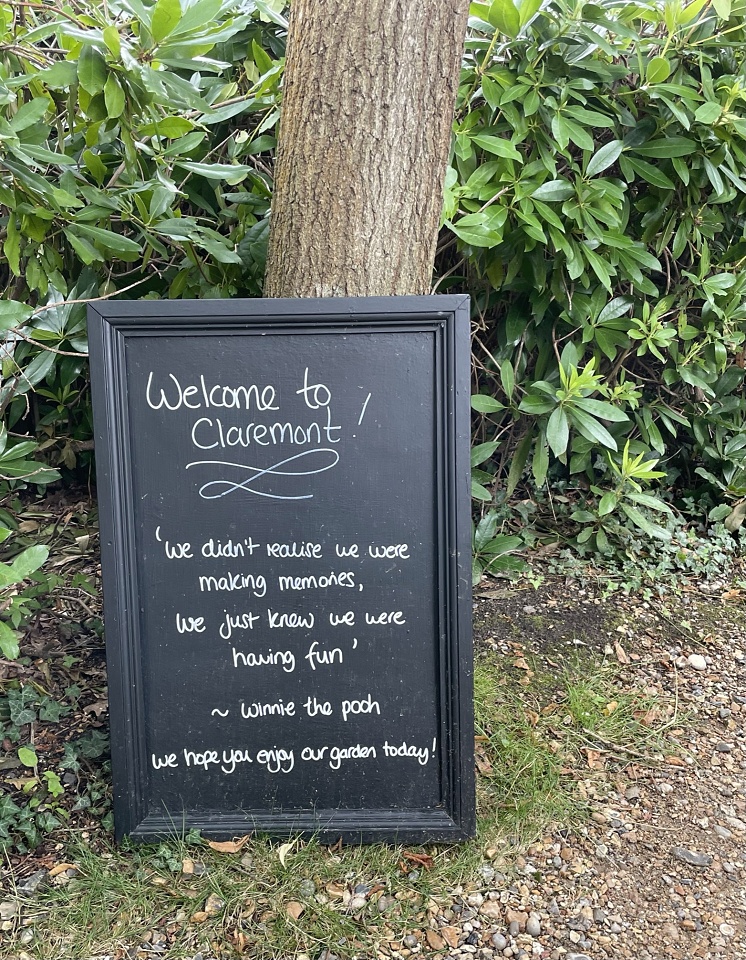 Welcome to
Claremont!
'We didn't realise we were
making memories,
we just knew we were
having fun'
~ winnie the pooh
we hope you enjoy our garden today!